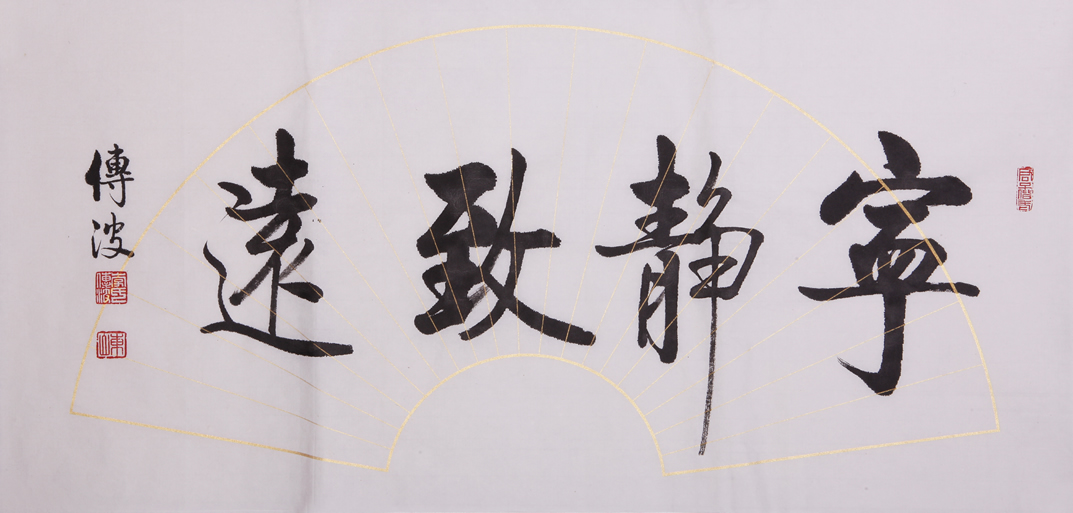 寧靜致遠
傳波